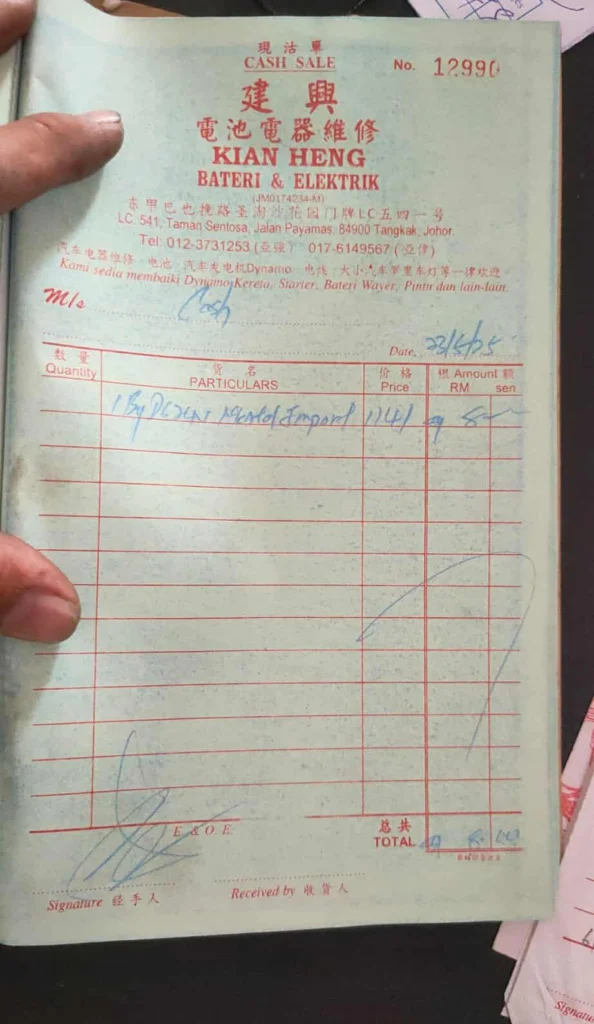 現沽單
CASH SALE
No. 12990
建興
電池電器維修
KIAN HENG
BATERI & ELEKTRIK
(JM0174234-M)
东甲巴也捞路圣淘沙花园门牌LC五四一号
LC. 541, Taman Sentosa, Jalan Payamas, 84900 Tangkak, Johor.
Tel: 012-3731253 (亚强) 017-6149567 (亚伟)
汽车电器维修 电池 汽车发电机Dynamo
Kami sedia membaiki Dynamo Kereta, Starter, Bateri Wayer, Pintu dan lain-lain.
M/s Cash
Date, 23/5/25
数量 货名 价格 Amount 额
Quantity PARTICULARS Price RM sen
1 Import 1141 8
总共
E. & O. E. TOTAL 8.00
Signature 经手人 Received by 收货人
Signatu